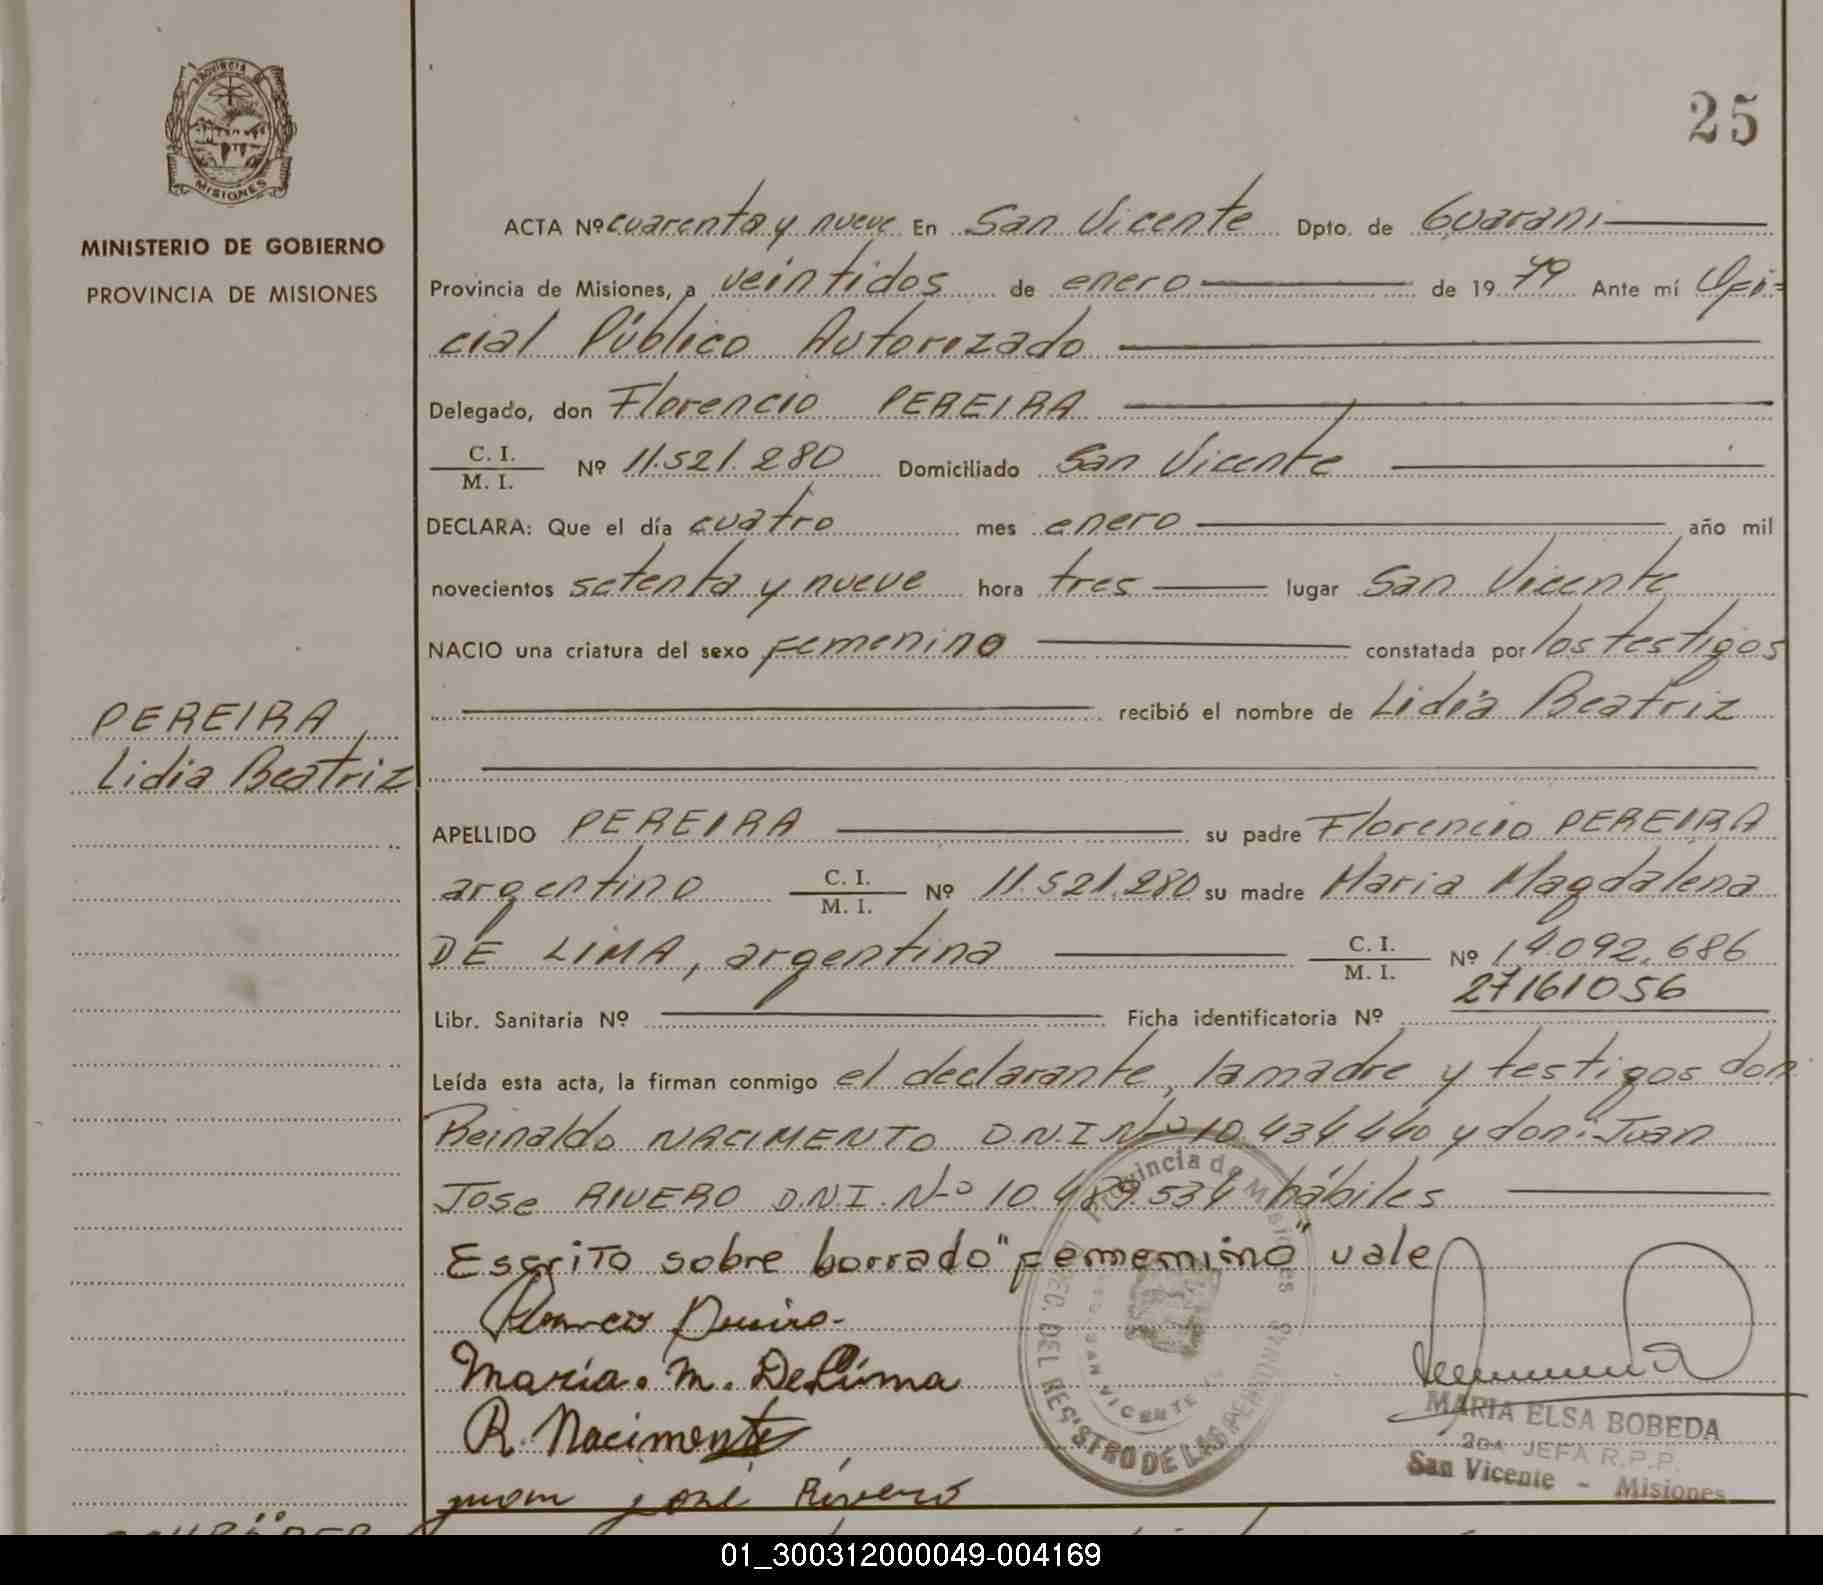 PROVINCIA DE
MISIONES
MINISTERIO DE GOBIERNO
PROVINCIA DE MISIONES
25
ACTA Nº cuarenta y nueve En San Vicente Dpto. de Guarani
Provincia de Misiones, a veintidos de enero de 1979 Ante mí Ofi=
cial Público Autorizado
Delegado, don Florencio PEREIRA
C. I.
M. I. Nº 11.521.280 Domiciliado San Vicente
DECLARA: Que el día cuatro mes enero año mil
novecientos setenta y nueve hora tres lugar San Vicente
NACIO una criatura del sexo femenino constatada por los testigos
recibió el nombre de Lidia Beatriz
PEREIRA
Lidia Beatriz
APELLIDO PEREIRA su padre Florencio PEREIRA
argentino C. I.
M. I. Nº 11.521.280 su madre Maria Magdalena
DE LIMA, argentina C. I.
M. I. Nº 14.092.686
Libr. Sanitaria Nº Ficha identificatoria Nº 27161056
Leída esta acta, la firman conmigo el declarante, la madre y testigos don
Reinaldo NACIMENTO D.N.I. Nº 10.434.440 y don: Juan
Jose RIVERO D.N.I. Nº 10.489.534 hábiles
Escrito sobre borrado "fememino" vale
Maria. M. De Lima
R. Nacimento
Juan José Rivero
Provincia de Misiones
SEC. DEL REGISTRO DE LAS PERSONAS
SAN VICENTE
MARIA ELSA BOBEDA
2DA JEFA R.P.P.
San Vicente - Misiones
01_300312000049-004169